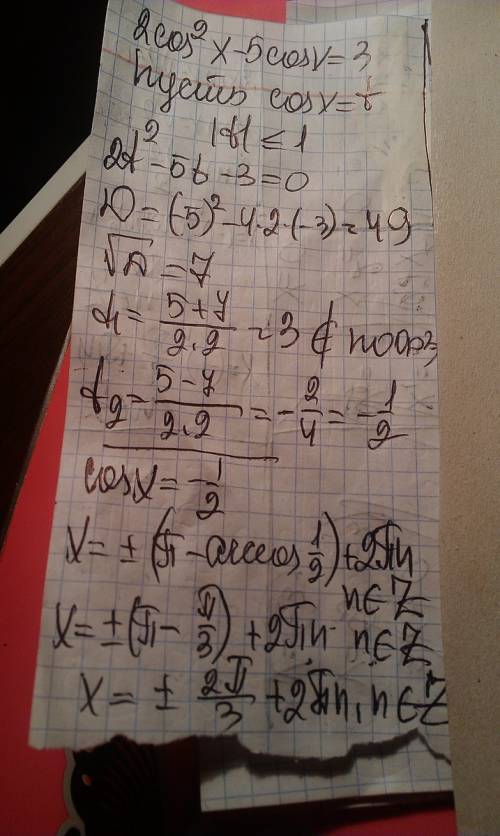 2cos²x-5cosx=3
пусть cosx=t
|t| ≤ 1
2t²-5t-3=0
D=(-5)²-4·2·(-3)=49
√D=7
t₁=(5+7)/(2·2)=3 ∉
t₂=(5-7)/(2·2)=-2/4=-1/2
cosx=-1/2
x=±(π-arccos 1/2)+2πn
n∈Z
x=±(π-π/3)+2πn n∈Z
x=±2π/3+2πn, n∈Z